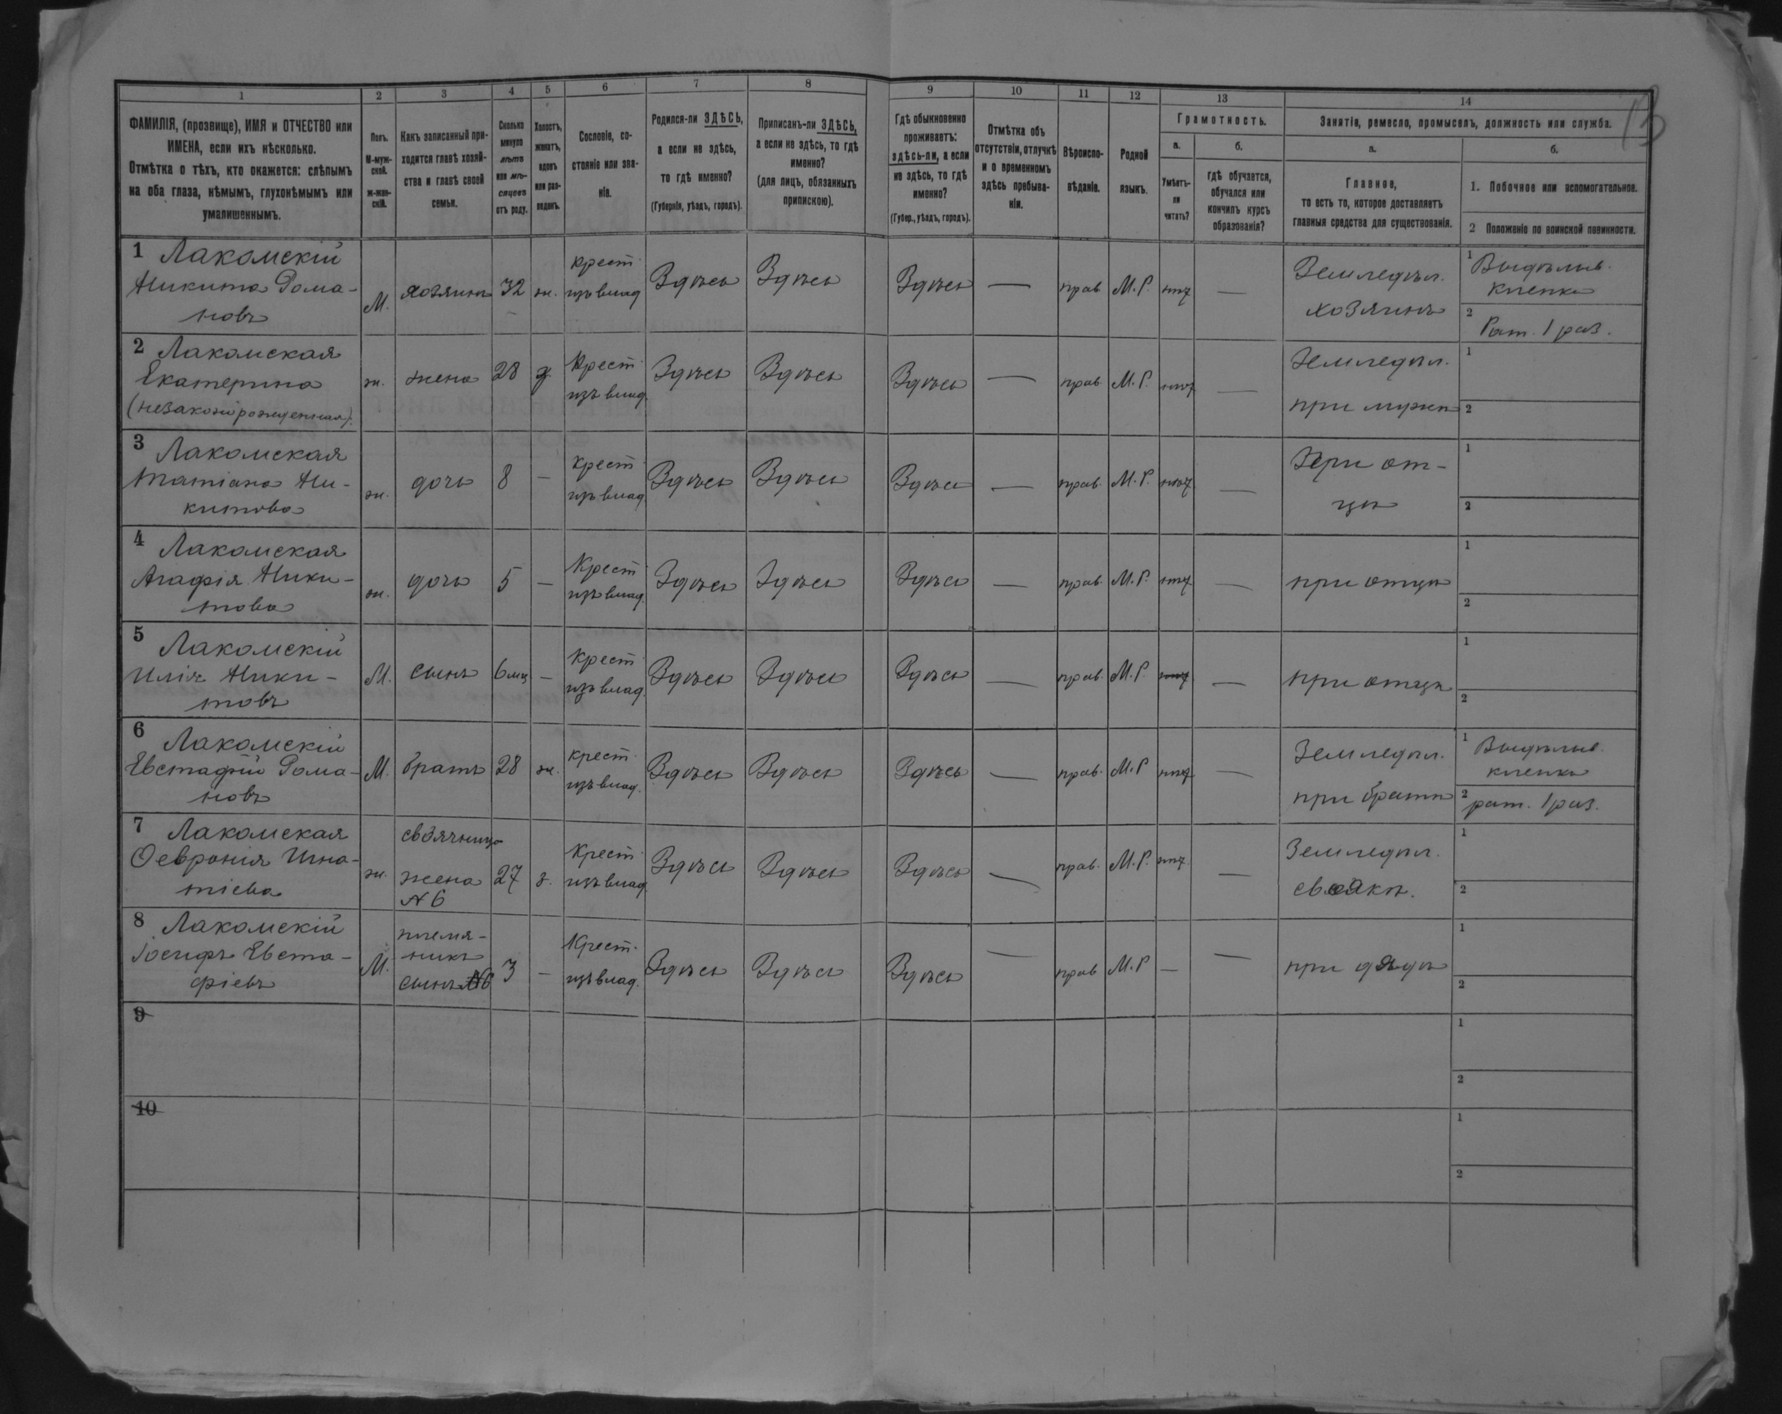 13
1 2 3 4 5 6 7 8 9 10 11 12 13 14
ФАМИЛІЯ, (прозвище), ИМЯ и ОТЧЕСТВО или
ИМЕНА, если ихъ нѣсколько.
Отмѣтка о тѣхъ, кто окажется: слѣпымъ
на оба глаза, нѣмымъ, глухонѣмымъ или
умалишеннымъ.
Полъ.
М-муж-
ской.
ж-жен-
скій.
Какъ записанный при-
ходится главѣ хозяй-
ства и главѣ своей
семьи.
Сколько
минуло
лѣтъ
или мѣ-
сяцевъ
отъ роду.
Холостъ,
женатъ,
вдовъ
или раз-
веденъ.
Сословіе, со-
стояніе или зва-
ніе.
Родился-ли ЗДѢСЬ,
а если не здѣсь,
то гдѣ именно?
(Губернія, уѣздъ, городъ).
Приписанъ-ли ЗДѢСЬ,
а если не здѣсь, то гдѣ
именно?
(для лицъ, обязанныхъ
припискою).
Гдѣ обыкновенно
проживаетъ:
здѣсь-ли, а если
не здѣсь, то гдѣ
именно?
(Губер., уѣздъ, городъ).
Отмѣтка объ
отсутствіи, отлучкѣ
и о временномъ
здѣсь пребыва-
ніи.
Вѣроиспо-
вѣданіе.
Родной
языкъ.
Грамотность.
а.
Умѣетъ-
ли
читать?
б.
гдѣ обучается,
обучался или
кончилъ курсъ
образованія?
Занятіе, ремесло, промыселъ, должность или служба.
а.
Главное,
то есть то, которое доставляетъ
главныя средства для существованія.
б.
1. Побочное или вспомогательное.
2 Положеніе по воинской повинности.
1 Лакомскій
Никита Рома-
новъ
М.
хозяинъ
32
ж.
крест.
изъ влад
Здѣсь
Здѣсь
Здѣсь
—
прав
М.Р.
нѣт
—
Земледѣл.
хозяинъ
1 Выдѣлыв.
клепки
2 Рат. 1 раз.
2 Лакомская
Екатерина
(незаконорожденная).
ж.
жена
28
з
Крест.
изъ влад
Здѣсь
Здѣсь
Здѣсь
—
прав.
М.Р.
нѣт
—
Земледѣл.
при мужѣ
1
2
3 Лакомская
Татіана Ни-
китова
ж.
дочь
8
—
крест.
изъ влад
Здѣсь
Здѣсь
Здѣсь
—
прав.
М.Р.
нѣт
—
При от-
цѣ
1
2
4 Лакомская
Агафія Ники-
това
ж.
дочь
5
—
Крест.
изъ влад.
Здѣсь
Здѣсь
Здѣсь
—
прав.
М.Р.
нѣт
—
при отцѣ
1
2
5 Лакомскій
Илія Ники-
товъ
М.
сынъ
6 мц
—
Крест.
изъ влад
Здѣсь
Здѣсь
Здѣсь
—
прав.
М.Р.
нѣт
—
при отцѣ
1
2
6 Лакомскій
Евстафій Рома-
новъ
М.
братъ
28
ж.
крест.
изъ влад.
Здѣсь
Здѣсь
Здѣсь
—
прав.
М.Р
нѣт
—
Земледѣл.
при братѣ
1 Выдѣлыв.
клепки
2 рат. 1 раз.
7 Лакомская
Февронія Игна-
тіева
ж.
своячница
жена
№6
27
з.
Крест.
изъ влад
Здѣсь
Здѣсь
Здѣсь
—
прав.
М.Р.
нѣт.
—
Земледѣл.
свояк.
1
2
8 Лакомскій
Іосифъ Евста-
фіевъ
М.
племя-
никъ
сынъ №6
3
—
Крест.
изъ влад.
Здѣсь
Здѣсь
Здѣсь
—
прав
М.Р
—
—
при дядѣ
1
2
9
1
2
10
1
2